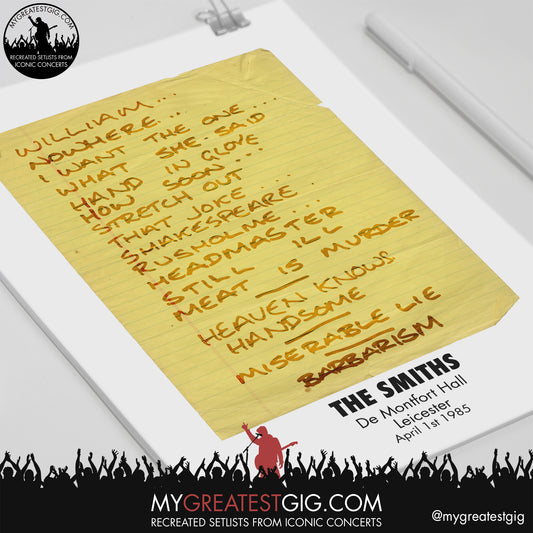 MYGREATESTGIG.COM
RECREATED SETLISTS FROM
ICONIC CONCERTS
WILLIAM...
NOWHERE...
I WANT THE ONE...
WHAT SHE SAID
HAND IN GLOVE
HOW SOON...
STRETCH OUT
THAT JOKE...
SHAKESPEARE
RUSHOLME...
HEADMASTER
STILL ILL
MEAT IS MURDER
HEAVEN KNOWS
HANDSOME
MISERABLE LIE
BARBARISM
THE SMITHS
De Montfort Hall
Leicester
April 1st 1985
MYGREATESTGIG.COM
RECREATED SETLISTS FROM ICONIC CONCERTS
@mygreatestgig